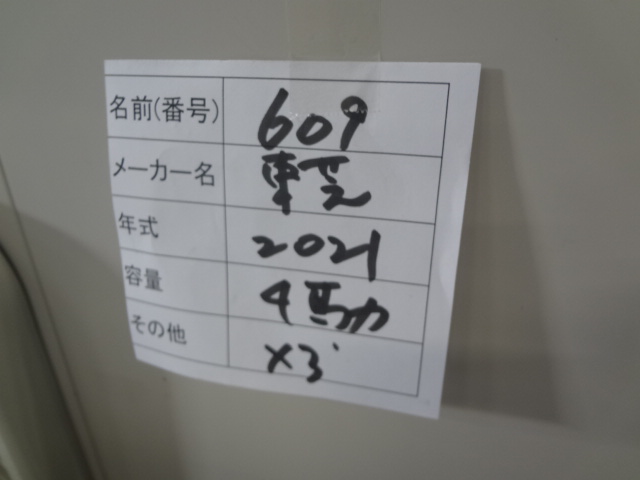 名前(番号) 609
メーカー名 東芝
年式 2021
容量 4馬力
その他 ×3